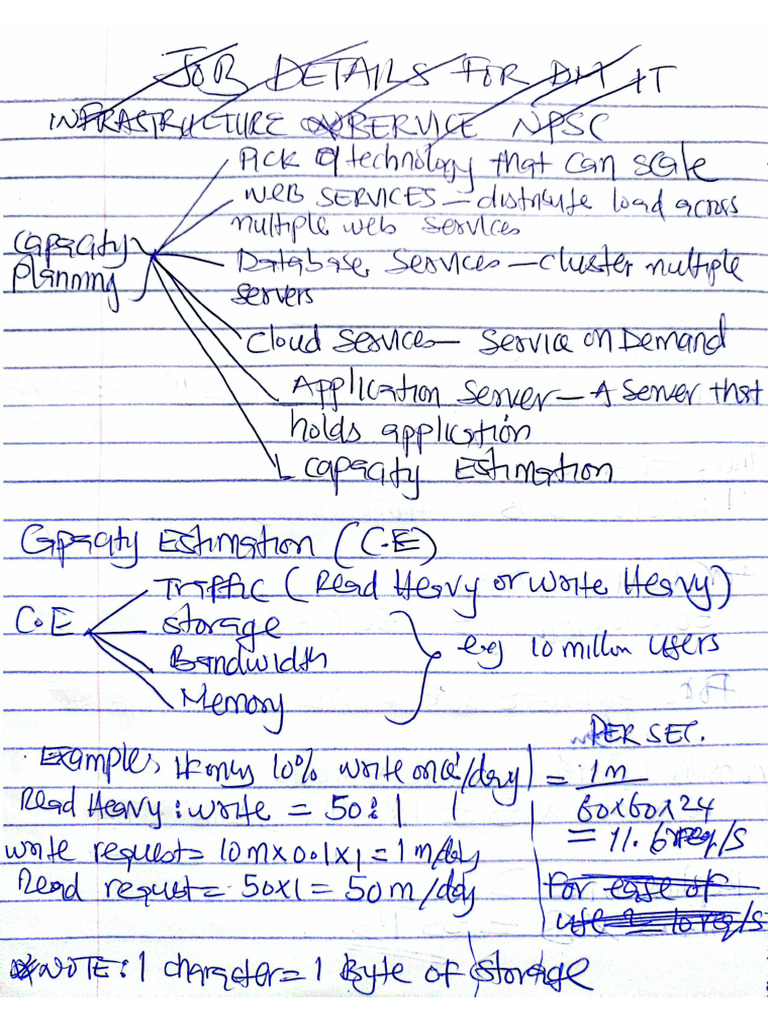 JOB DETAILS FOR DM IT
INFRASTRUCTURE SERVICE NPSC
Pick of technology that can scale
WEB SERVICES - distribute load across
multiple web services
Capacity
Planning
Database Services - cluster multiple
servers
Cloud services - Service on Demand
Application Server - A Server that
holds application
Capacity Estimation
Capacity Estimation (C.E)
Traffic (Read Heavy or Write Heavy)
C.E
Storage
Bandwidth
Memory
e.g 10 millon users
PER SEC.
Examples If only 10% write once/day
= 1m
60x60x24
Read Heavy : write = 50:1
= 11.6 req/s
write request = 10mx0.1x1 = 1m/day
Read request = 50x1 = 50m/day
For ease of
use = 10 req/s
NOTE: 1 character = 1 Byte of storage